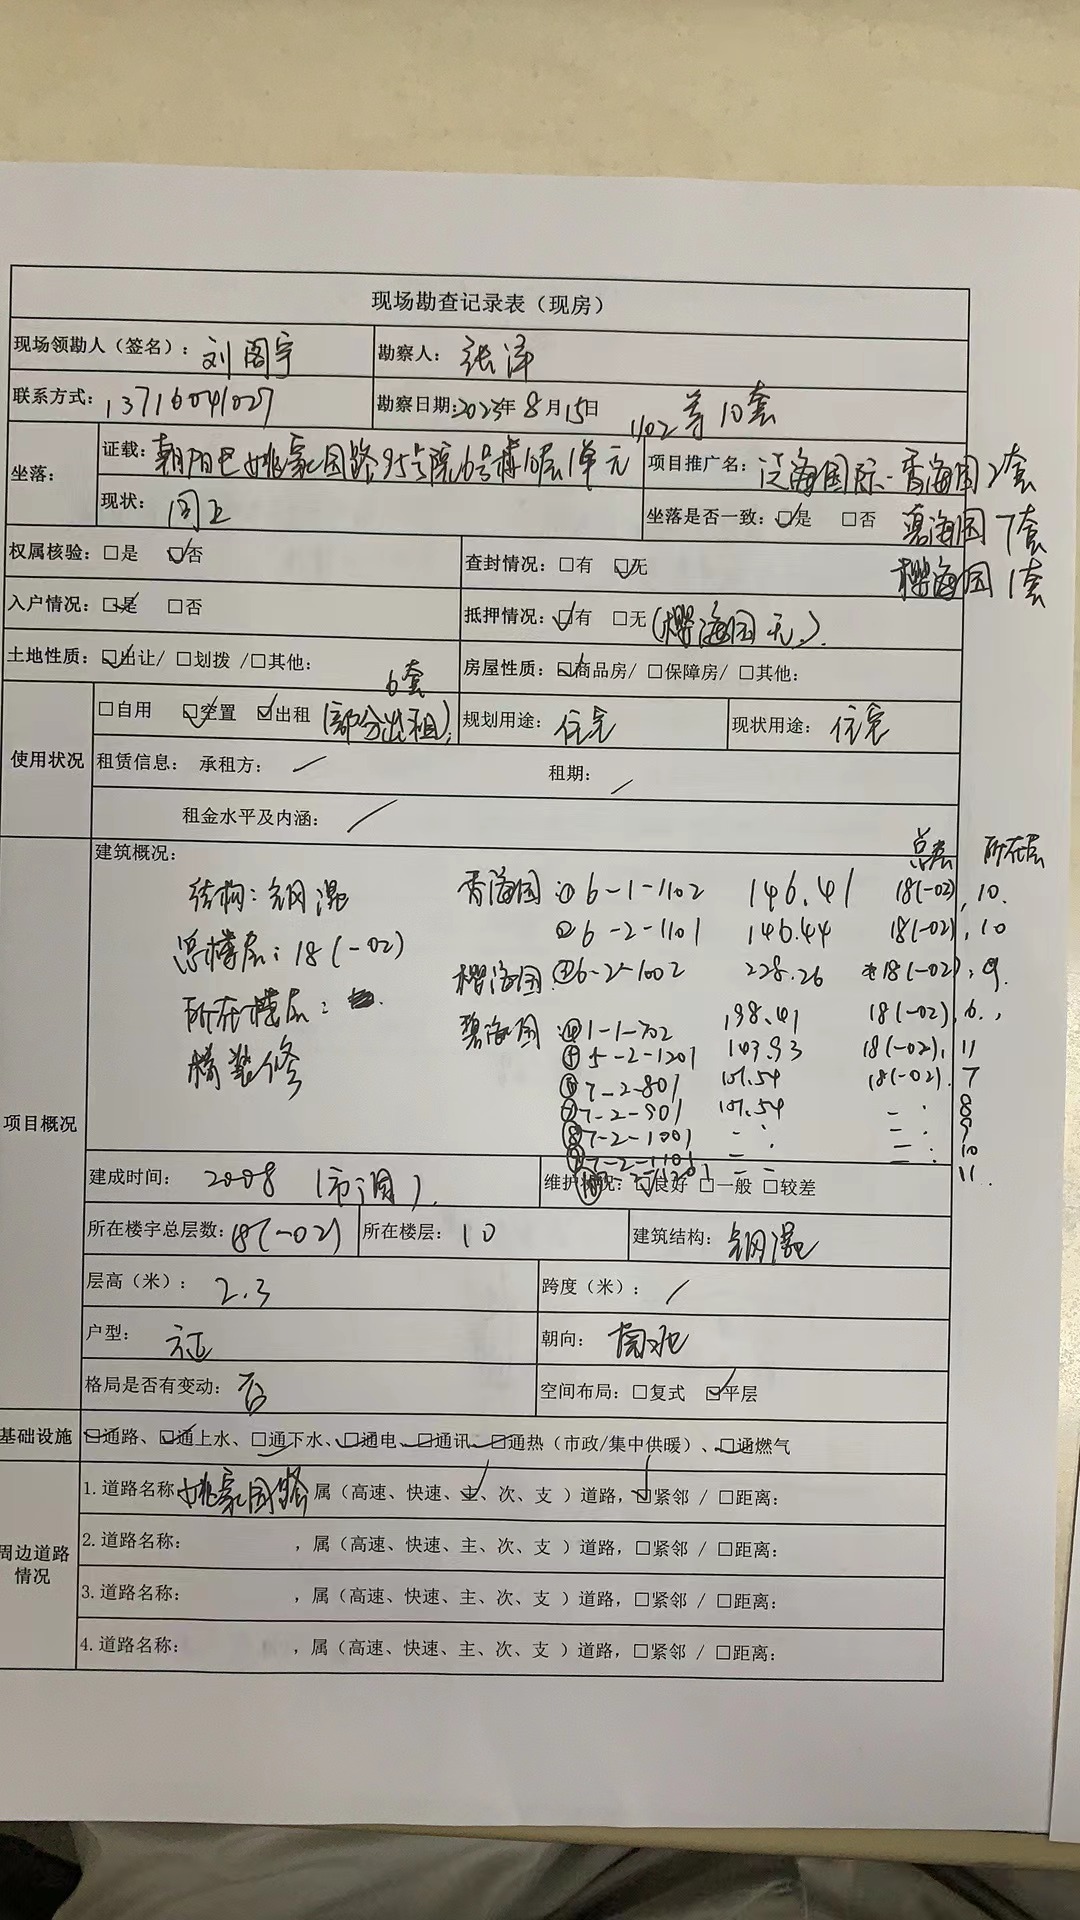 现场勘查记录表（现房）
现场领勘人（签名）：刘阁宇 勘察人：张泽
联系方式：13716041027 勘察日期:2023年8月15日
1102等10套
坐落： 证载：朝阳区姚家园路95号院6号楼10层1单元 项目推广名：泛海国际-香海园2套
现状：同上 坐落是否一致：☑是 □否 碧海园7套
权属核验：□是 ☑否 查封情况：□有 ☑无 樱海园1套
入户情况：☑是 □否 抵押情况：☑有 □无(樱海园无).
土地性质：☑出让/ □划拨 /□其他： 房屋性质：☑商品房/ □保障房/ □其他：
6套
使用状况 □自用 ☑空置 ☑出租 (部分出租). 规划用途：住宅 现状用途：住宅
租赁信息： 承租方：／ 租期：／
租金水平及内涵：／
项目概况 建筑概况： 总层 所在层
结构：钢混 香海园：① 6-1-1102 146.41 18(-02), 10.
总楼层：18(-02) ② 6-2-1101 146.44 18(-02), 10
樱海园 ③6-2-1002 228.26 18(-02), 9.
所在楼层： 碧海园 ④1-1-702 198.41 18(-02), 6.
⑤5-2-1201 103.93 18(-02), 11
精装修 ⑥7-2-801 107.54 18(-02). 7
⑦7-2-901 107.54 — . 8
⑧7-2-1001 — . — . 9
⑨7-2-1101 — — 10
⑩ 11
建成时间：2008 (市调). 维护状况：□良好 □一般 □较差
所在楼宇总层数：18(-02) 所在楼层：10 建筑结构：钢混
层高（米）：2.3 跨度（米）：／
户型： 朝向：南北
格局是否有变动：否 空间布局：□复式 ☑平层
基础设施 ☑通路、☑通上水、☑通下水、☑通电、☑通讯、☑通热（市政/集中供暖）、☑通燃气
周边道路情况 1.道路名称姚家园路，属（高速、快速、主、次、支 ）道路，☑紧邻 / □距离：
2.道路名称： ，属（高速、快速、主、次、支 ）道路，□紧邻 / □距离：
3.道路名称： ，属（高速、快速、主、次、支 ）道路，□紧邻 / □距离：
4.道路名称： ，属（高速、快速、主、次、支 ）道路，□紧邻 / □距离：